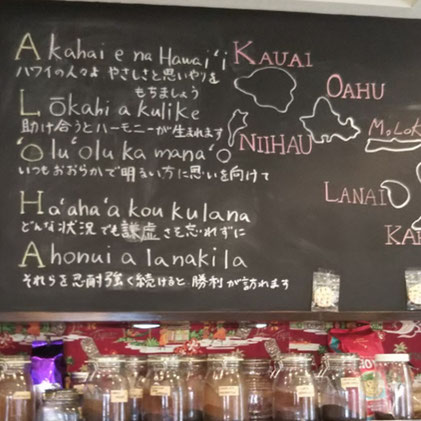 Akahai e na Hawaiʻi
ハワイの人々よ やさしさと思いやりを
もちましょう
Lōkahi a kulike
助け合うとハーモニーが生まれます
ʻOluʻolu ka manaʻo
いつもおおらかで明るい方に思いを向けて
Haʻahaʻa kou kulana
どんな状況でも謙虚さを忘れずに
Ahonui a lanakila
それらを忍耐強く続けると 勝利が訪れます
KAUAI
OAHU
NIIHAU
MOLOK
LANAI
KA